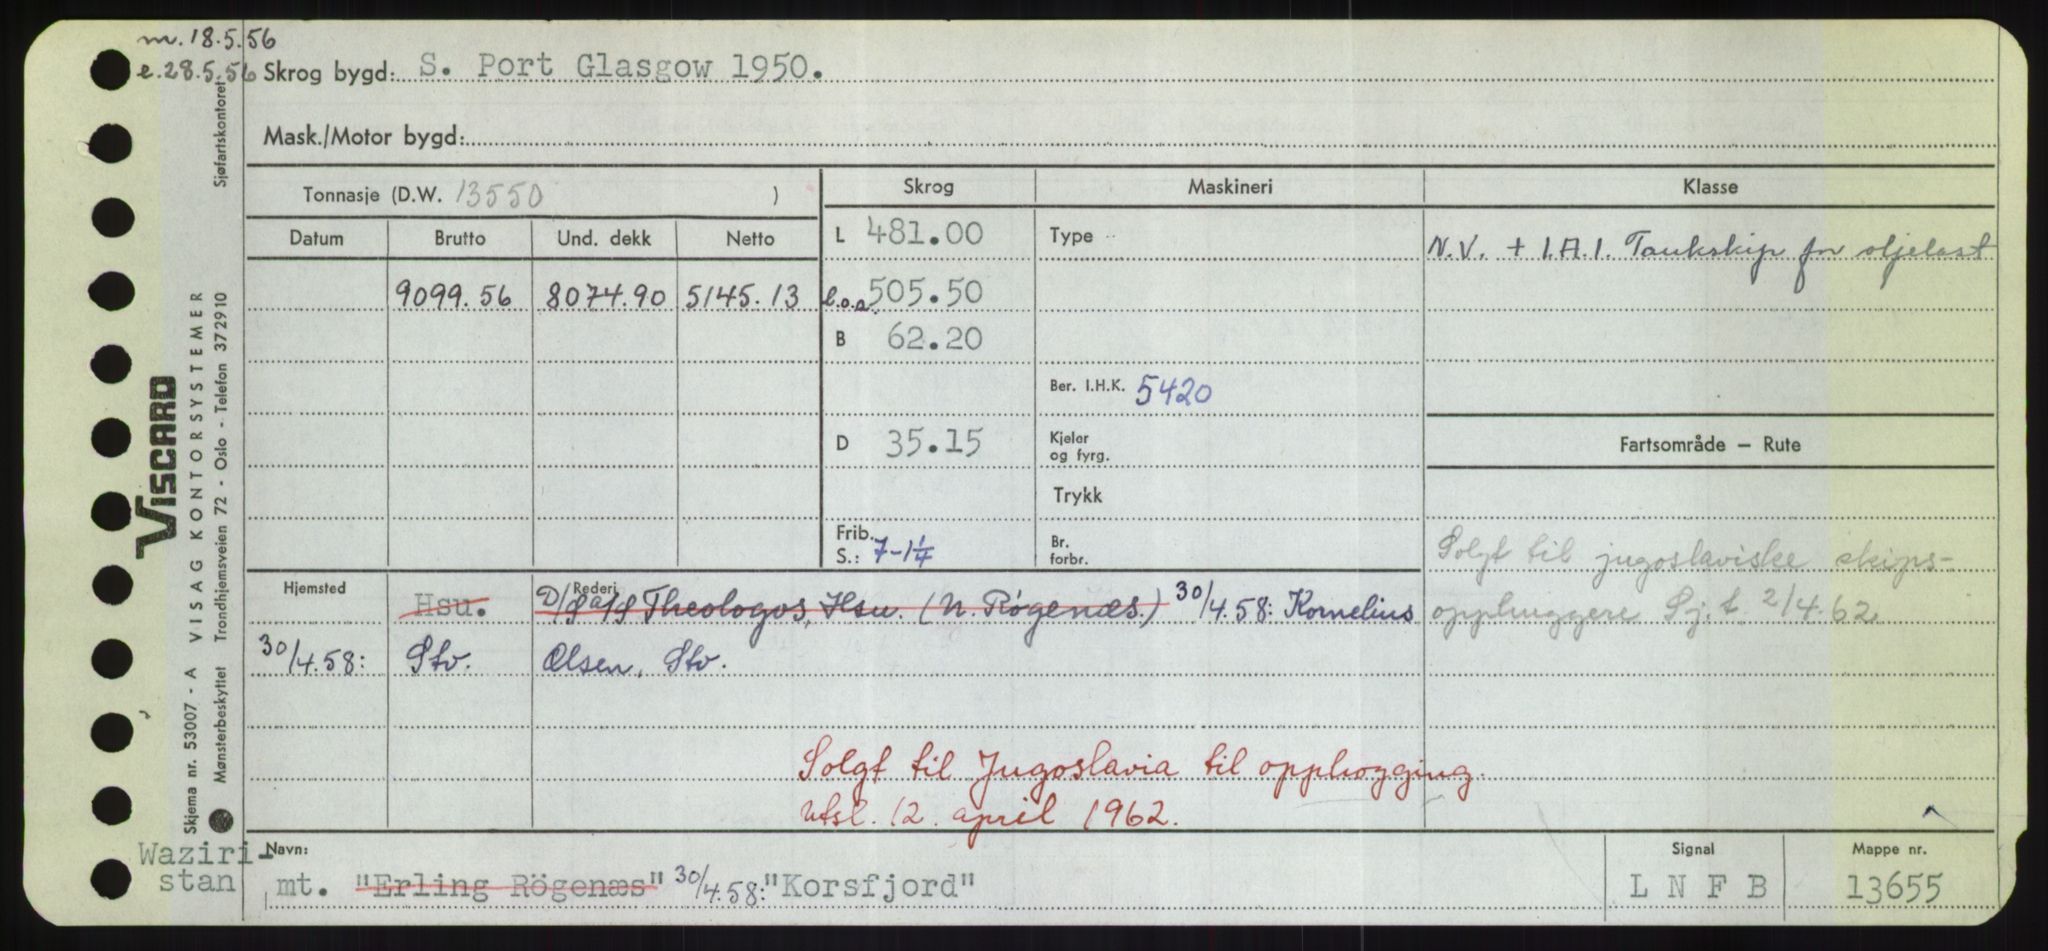 m. 18.5.56
e. 28.5.56 Skrog bygd: S. Port Glasgow 1950.
Mask./Motor bygd:
Tonnasje (D.W. 13550 )
Skrog
Maskineri
Klasse
Datum
Brutto
Und. dekk
Netto
L 481.00
Type
N.V. + 1.A.1. Tankskip for oljelast
9099.56
8074.90
5145.13
l.o.a. 505.50
B 62.20
Ber. I.H.K. 5420
D 35.15
Kjeler
og fyrg.
Fartsområde – Rute
Trykk
Frib.
S.: 7-1¼
Br.
forbr.
Solgt til jugoslaviske skips-
opphuggere Sj.t. 2/4.62
Hjemsted
Hsu.
Rederi
D/S a/S Theologos, Hsu. (N. Røgenæs.) 30/4.58: Kornelius
30/4.58: Stv.
Olsen, Stv.
Solgt til Jugoslavia til opphogging.
Utsl. 12. april 1962.
Waziri-
stan
Navn:
mt. "Erling Rögenæs" 30/4.58: "Korsfjord"
Signal
L N F B
Mappe nr.
13655
VISCARD
Skjema nr. 53007 - A VISAG KONTORSYSTEMER
Mønsterbeskyttet Trondhjemsveien 72 - Oslo - Telefon 372910
Sjøfartskontoret